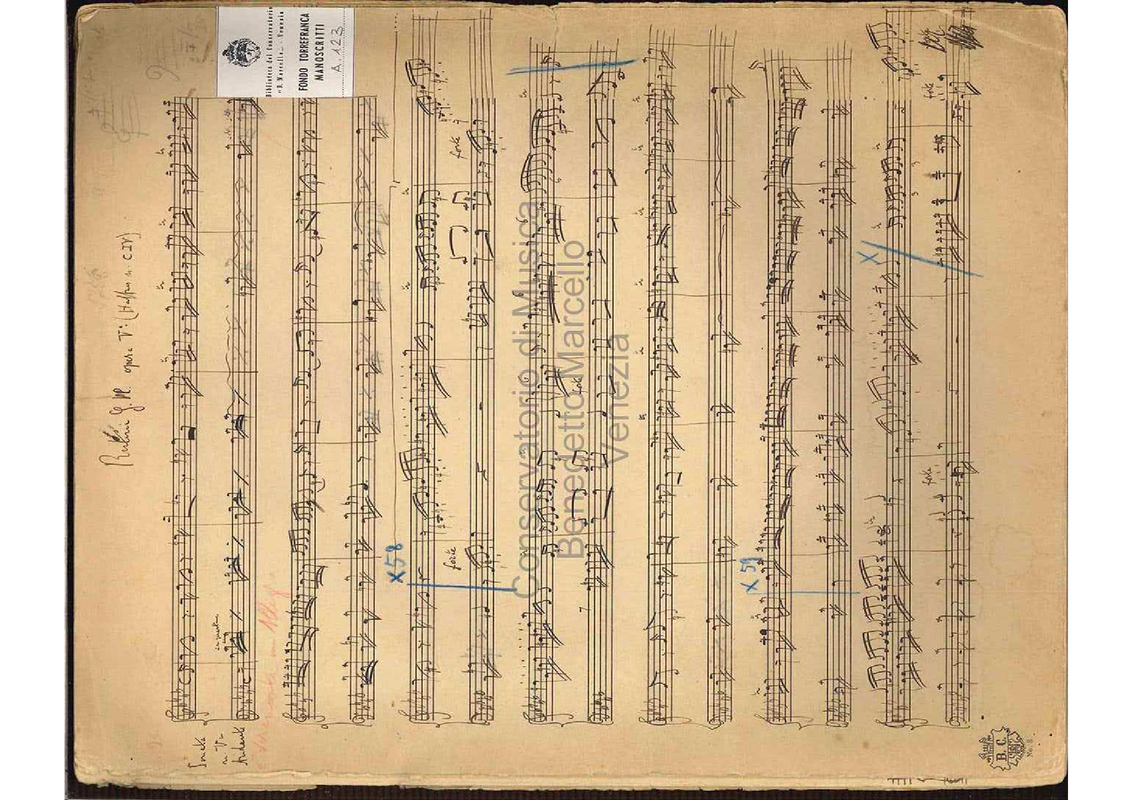 Biblioteca del Conservatorio
"B. Marcello" - Venezia
FONDO TORREFRANCA
MANOSCRITTI
A. 123
Rutini G. M. opera Vª (Haffner n. CIV)
Sonata
Andante
forte
forte
forte
forte
forte
X 58
X 59
X
Conservatorio di Musica
Benedetto Marcello
Venezia
B. C.